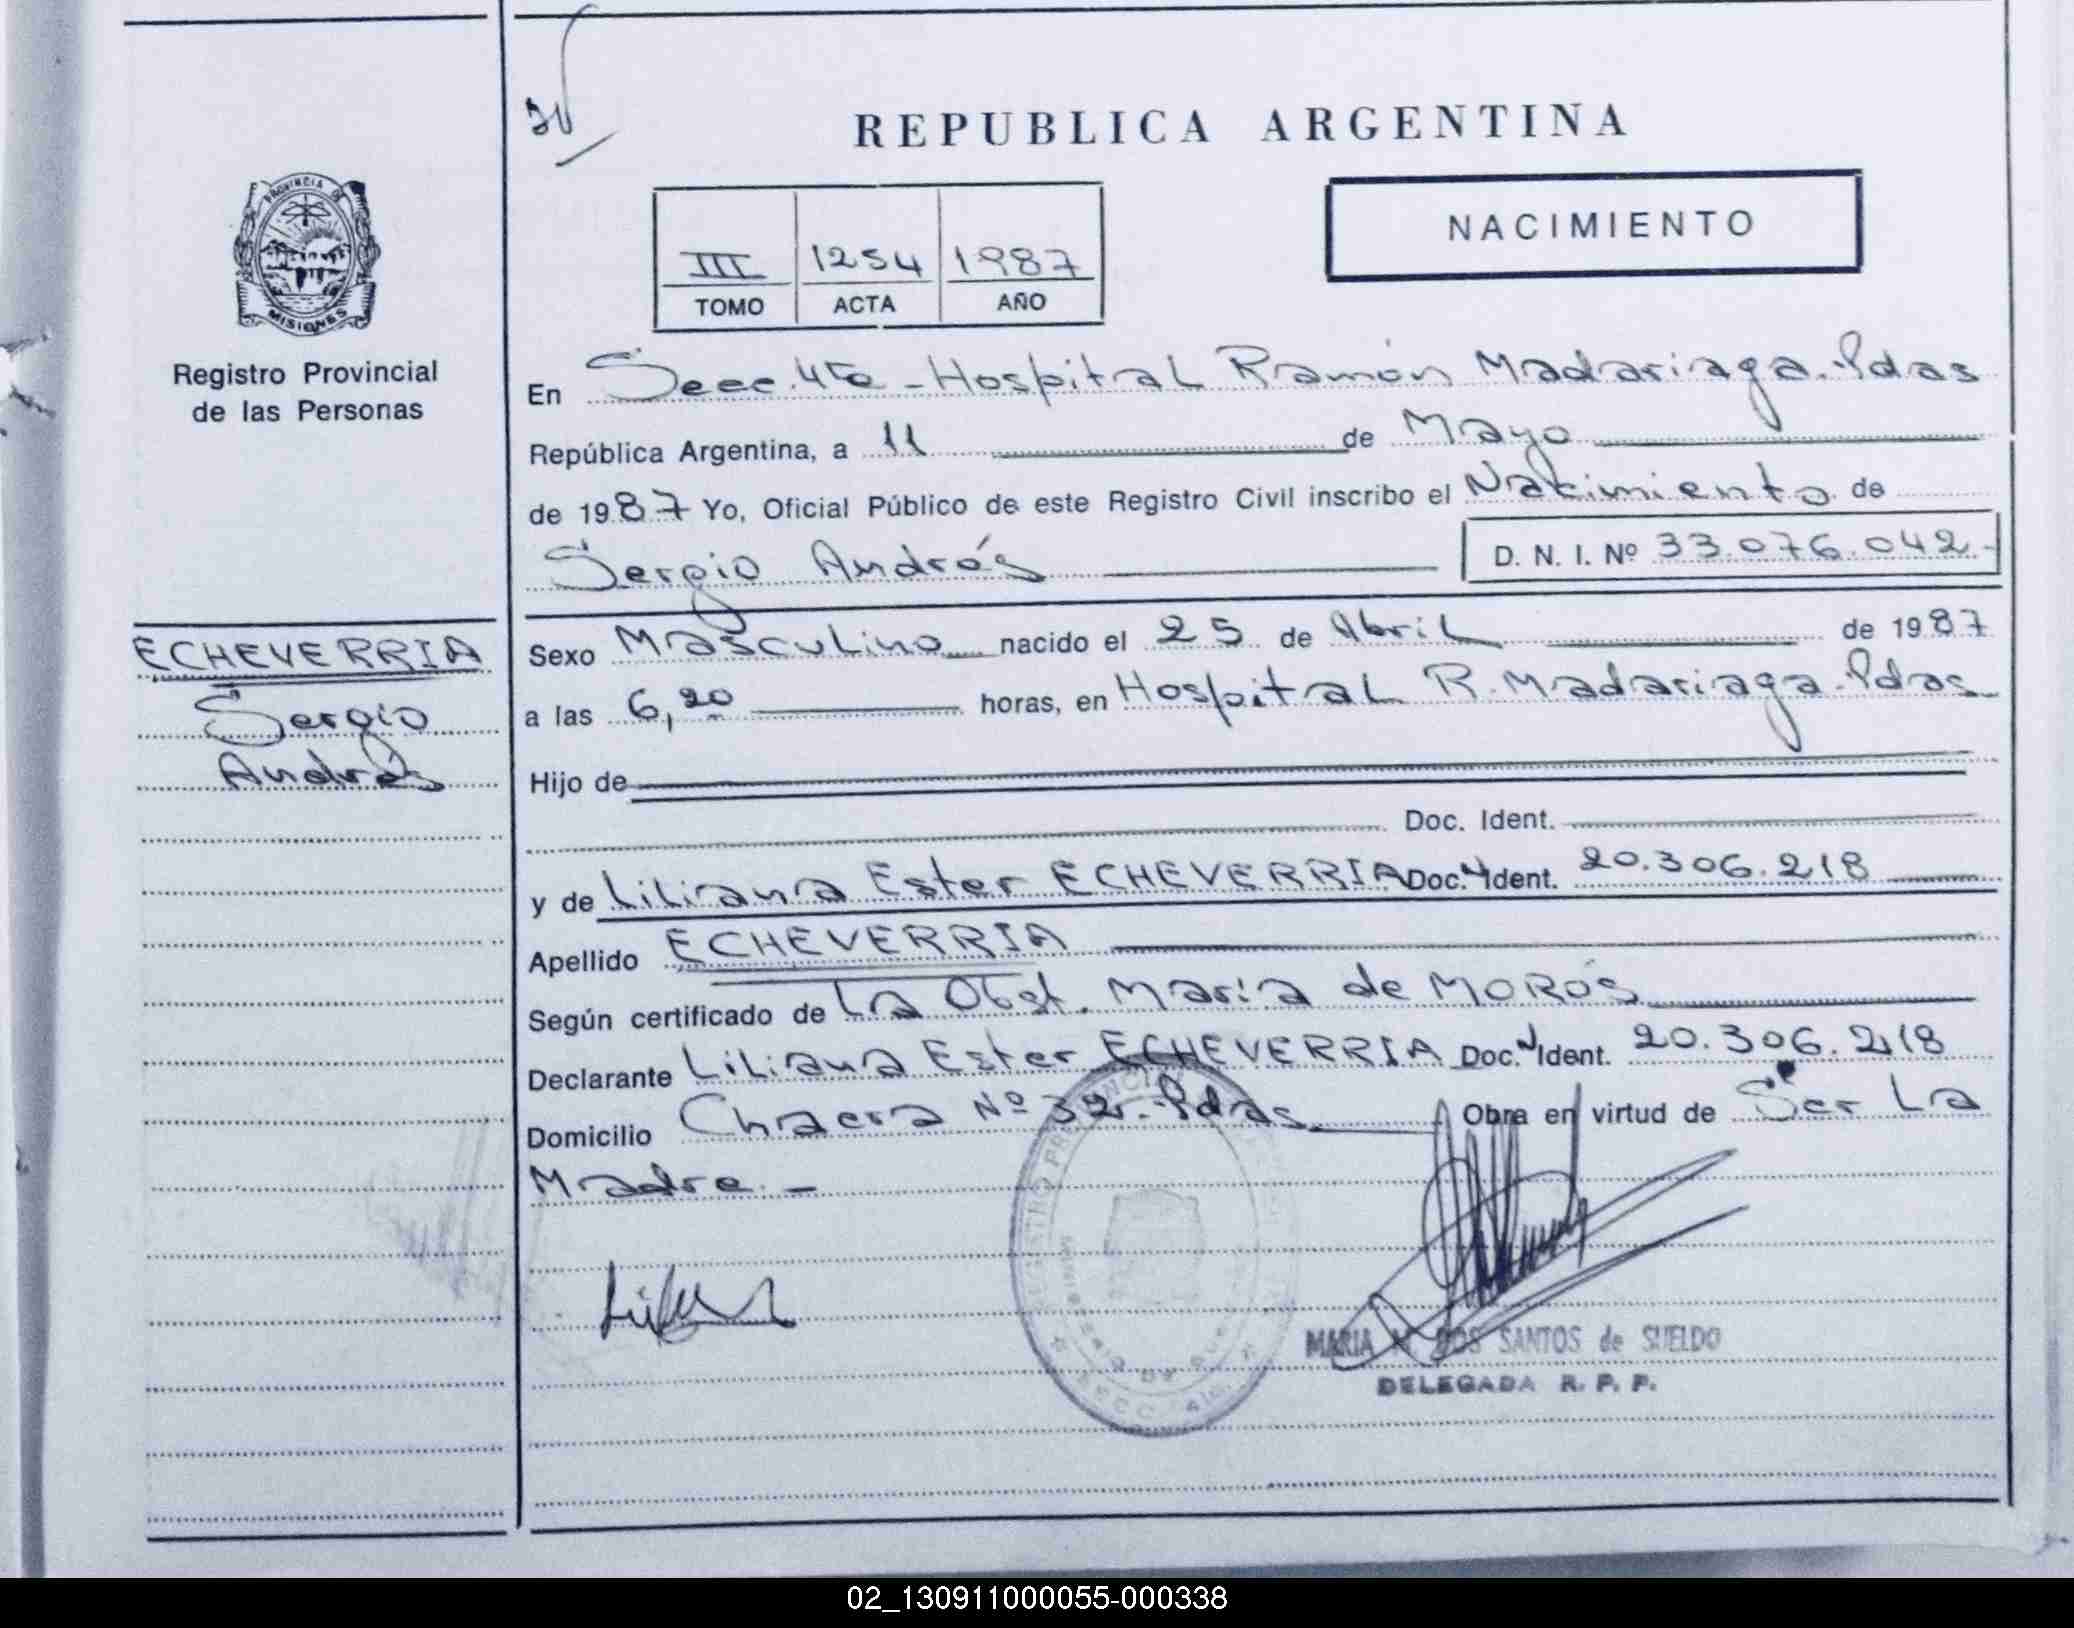 REPUBLICA ARGENTINA
NACIMIENTO
III 1254 1987
TOMO ACTA AÑO
PROVINCIA DE
MISIONES
Registro Provincial
de las Personas
En Secc. 4ta - Hospital Ramón Madariaga. Pdas
República Argentina, a 11 de Mayo
de 1987 Yo, Oficial Público de este Registro Civil inscribo el Nacimiento de
Sergio Andrés D. N. I. Nº 33.076.042.-
ECHEVERRIA
Sergio
Andrés
Sexo Masculino nacido el 25 de Abril de 1987
a las 6,20 horas, en Hospital R. Madariaga. Pdas
Hijo de
Doc. Ident.
y de Liliana Ester ECHEVERRIA Doc. Ident. 20.306.218
Apellido ECHEVERRIA
Según certificado de La Obst. María de MOROS
Declarante Liliana Ester ECHEVERRIA Doc. Ident. 20.306.218
Domicilio Chacra Nº 32. Pdas Obra en virtud de Ser La
Madre. -
MARIA M. DOS SANTOS de SUELDO
DELEGADA R. P. P.
02_130911000055-000338